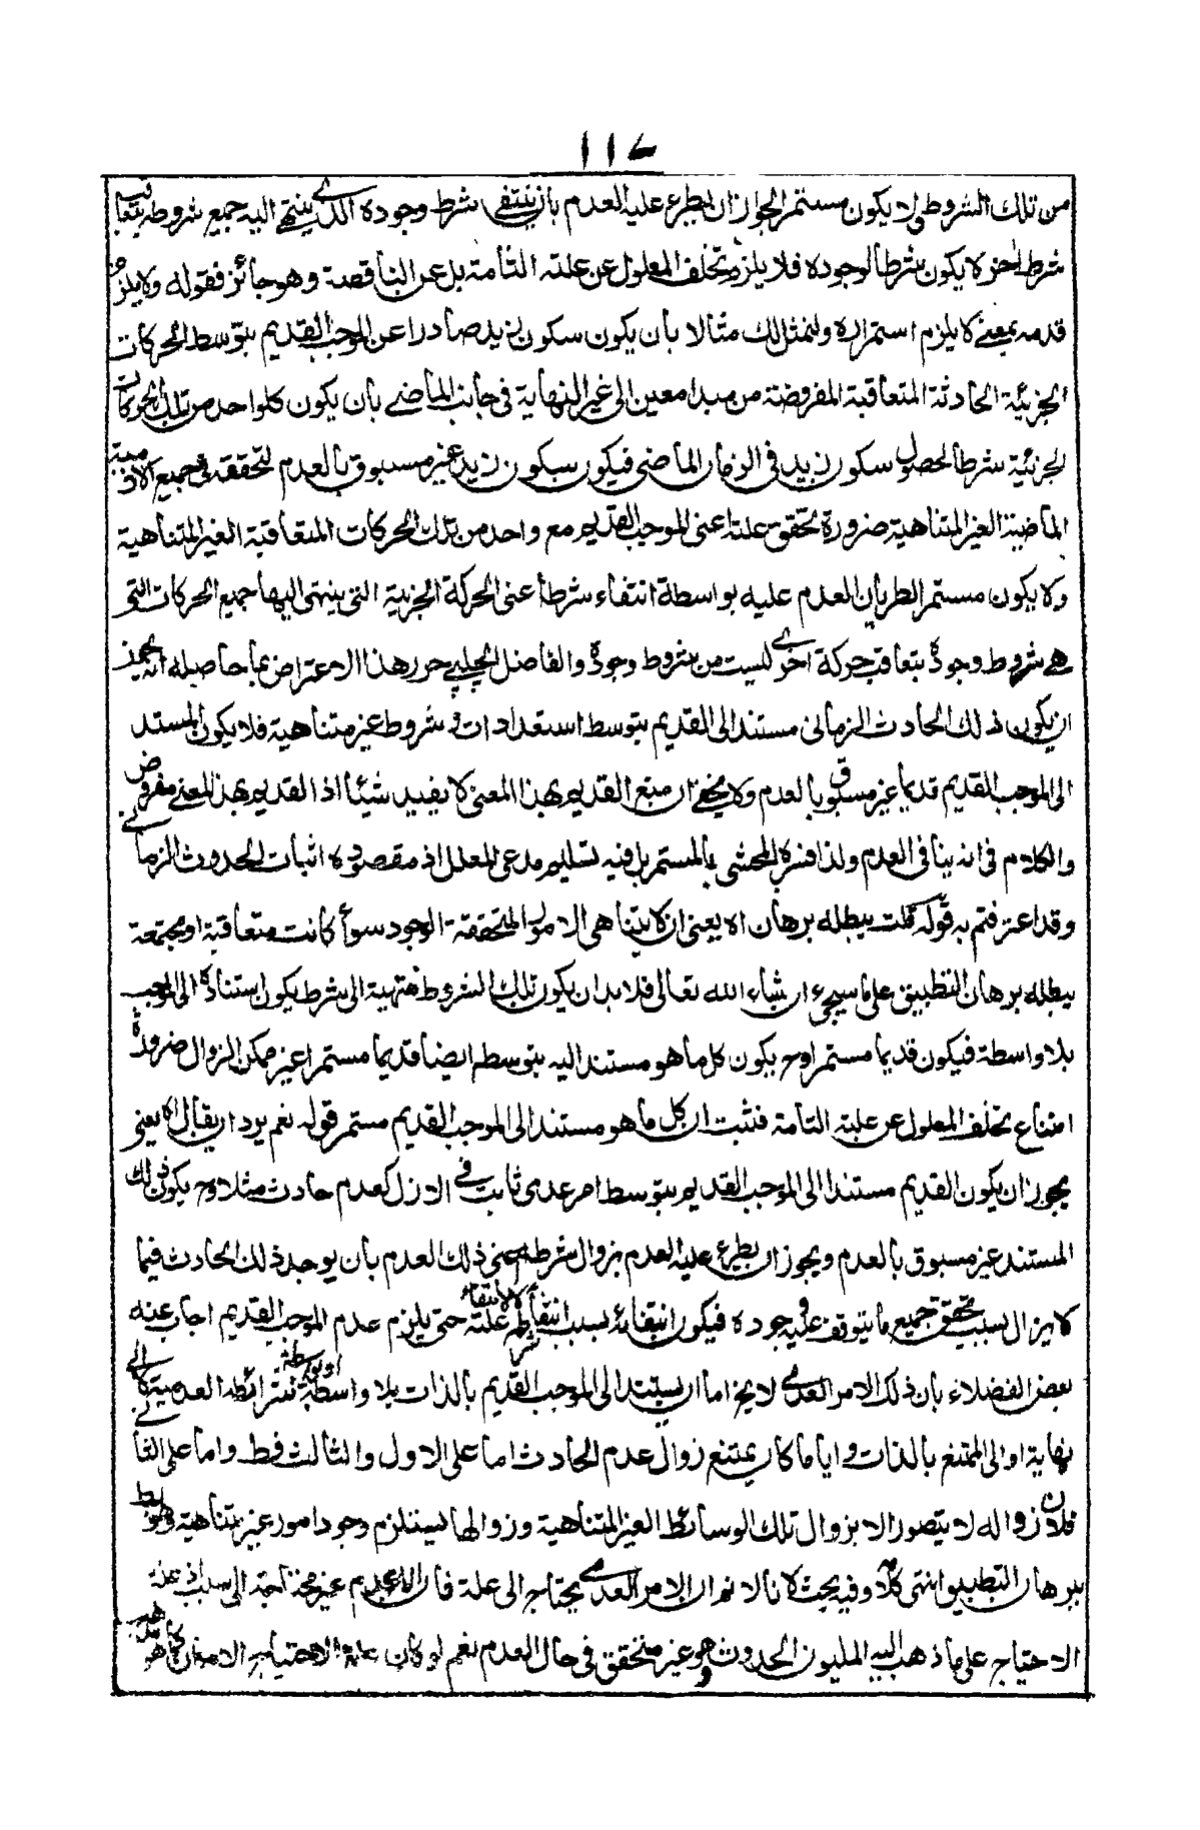 ١١٧
من تلك الشروط ولا يكون مستمر الجواز ان يطرء عليه العدم بان ينتفى شرط وجوده الذي ينتهي اليه جميع شروطه بتعاقب
شرط اخر لا يكون شرطا لوجوده فلا يلزم تخلف المعلول عن علته التامة بل عن الناقصة وهو جائز فقوله ولا يلزم
قدمه بمعنى لا يلزم استمراره ولنمثل لك مثالا بأن يكون سكون زيد صادرا عن الموجب القديم بتوسط الحركات
الجزئية الحادثة المتعاقبة المفروضة من مبدا معين الى غير النهاية في جانب الماضي بأن يكون كلواحد من تلك الحركات
الجزئية شرطا لحصول سكون زيد في الزمان الماضي فيكون سكون زيد غير مسبوق بالعدم لتحققه في جميع الازمنة
الماضية الغير المتناهية ضرورة تحقق علته اعنى الموجب القديم مع واحد من تلك الحركات المتعاقبة الغير المتناهية
ولا يكون مستمر الطريان العدم عليه بواسطة انتفاء شرطه اعنى الحركة الجزئية التى ينتهى اليها جميع الحركات التي
هي شروط وجوده بتعاقب حركة اخرى ليست من شروط وجوده والفاضل الچلپي حرر هذا الاعتراض بما حاصله انه يجوز
ان يكون ذلك الحادث الزمانى مستندا الى القديم بتوسط استعدادات وشروط غير متناهية فلا يكون المستند
الى الموجب القديم قديما غير مسبوق بالعدم ولا يخفى ان منع القديم بهذا المعنى لا يفيد شيئا اذ القديم بهذا المعنى مفروض
والكلام في انه ينافى العدم ولذا فسره المحشى بالمستمر بل فيه تسليم مدعى المعلل اذ مقصوده اثبات الحدوث الزماني
وقد اعترفتم به قوله قلت يبطله برهان اه يعنى ان لا تناهى الامور المتحققة الوجود سوأ كانت متعاقبة او مجتمعة
يبطله برهان التطبيق على ما سيجيء ان شاء الله تعالى فلا بد ان يكون تلك الشروط منتهية الى شرط يكون استناده الى الموجب
بلا واسطة فيكون قديما مستمرا وح يكون كل ما هو مستند اليه بتوسطه ايضا قديما مستمرا غير ممكن الزوال ضرورة
امتناع تخلف المعلول عن علته التامة فثبت ان كل ما هو مستند الى الموجب القديم مستمر قوله نعم يرد ان يقال اه يعنى
يجوز ان يكون القديم مستندا الى الموجب القديم بتوسط امر عدمى ثابت في الازل كعدم حادث مثلا وح يكون ذلك
المستند غير مسبوق بالعدم ويجوز ان يطرء عليه العدم بزوال شرطه اعنى ذلك العدم بأن يوجد ذلك الحادث فيما
لا يزال بسبب تحقق جميع ما يتوقف عليه وجوده فيكون انتفاءه بسبب انتفاء شرطه لا لانتفاء علته حتى يلزم عدم الموجب القديم اجاب عنه
بعض الفضلاء بان ذلك الامر العدمي لا يخ اما ان يستند الى الموجب القديم بالذات بلا واسطة او بواسطة شرائط العدمية لا الى
نهاية او الى الممتنع بالذات و اياما كان يمتنع زوال عدم الحادث اما على الاول والثالث فظ واما على الثاني
فلان زواله لا يتصور الا بزوال تلك الوسائط الغير المتناهية وزوالها يستلزم وجود امور غير متناهية وهو بط
ببرهان التطبيق انتهى كلامه وفيه بحث لانا لا نم ان الامر العدمي يحتاج الى علة فان الاعدام غير محتاجة الى سبب اذ علة
الاحتياج على ما ذهب اليه المليون الحدوث وهو غير متحقق في حال العدم نعم لو كان علة الاحتياج الامكان كما هو